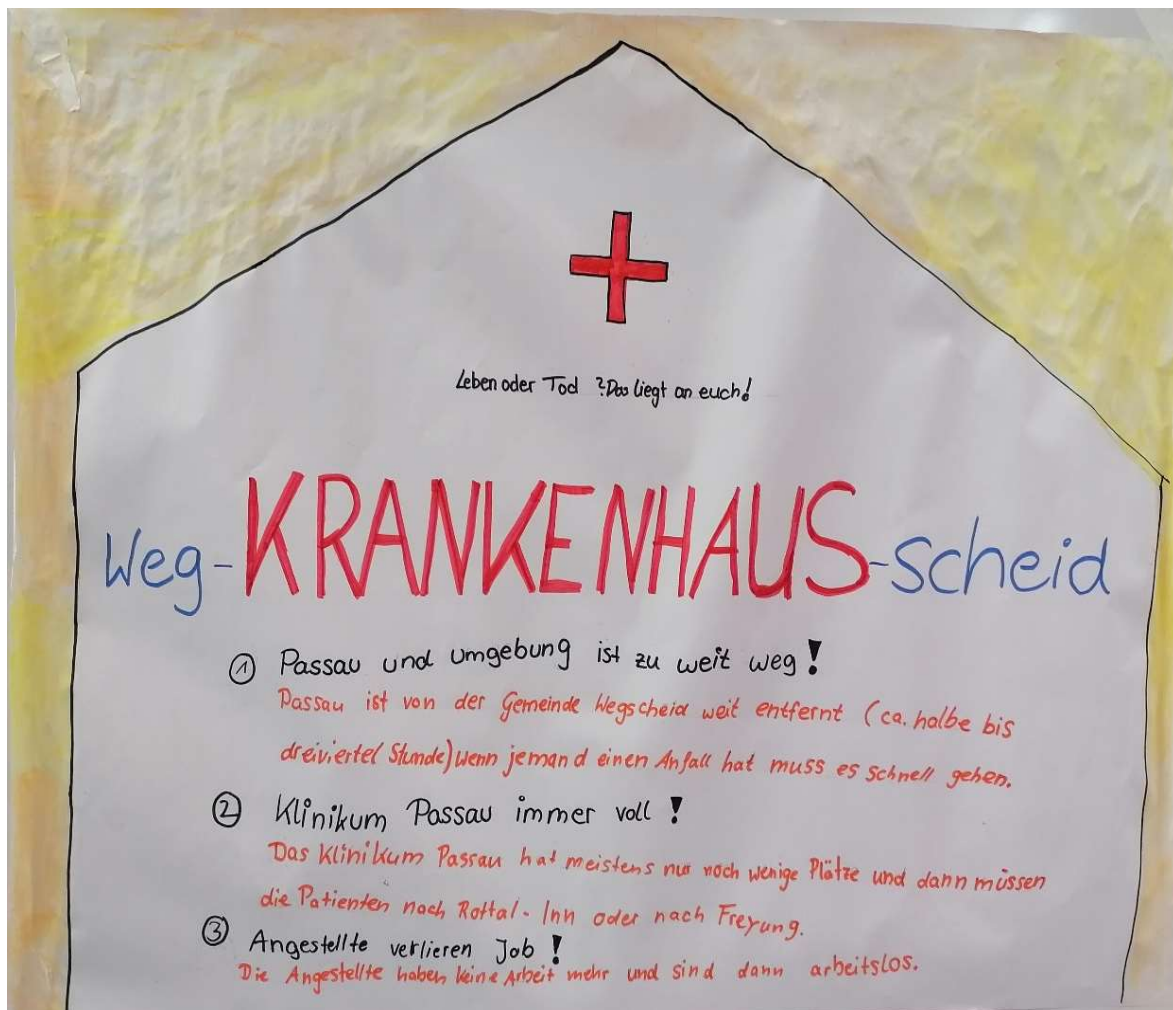 Leben oder Tod ? Das liegt an euch!
Weg-KRANKENHAUS-scheid
① Passau und Umgebung ist zu weit weg!
Passau ist von der Gemeinde Wegscheid weit entfernt (ca. halbe bis
dreiviertel Stunde) wenn jemand einen Anfall hat muss es schnell gehen.
② Klinikum Passau immer voll!
Das Klinikum Passau hat meistens nur noch wenige Plätze und dann müssen
die Patienten nach Rottal-Inn oder nach Freyung.
③ Angestellte verlieren Job!
Die Angestellte haben keine Arbeit mehr und sind dann arbeitslos.